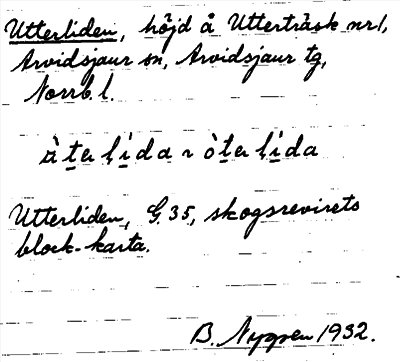 Utterliden, höjd å Utterträsk nr 1,
Arvidsjaur sn, Arvidsjaur tg,
Norrb. l.
àter lìda ~ òter lìda
Utterliden, G. 35, skogsrevirets
block-karta.
B. Nygren 1932.